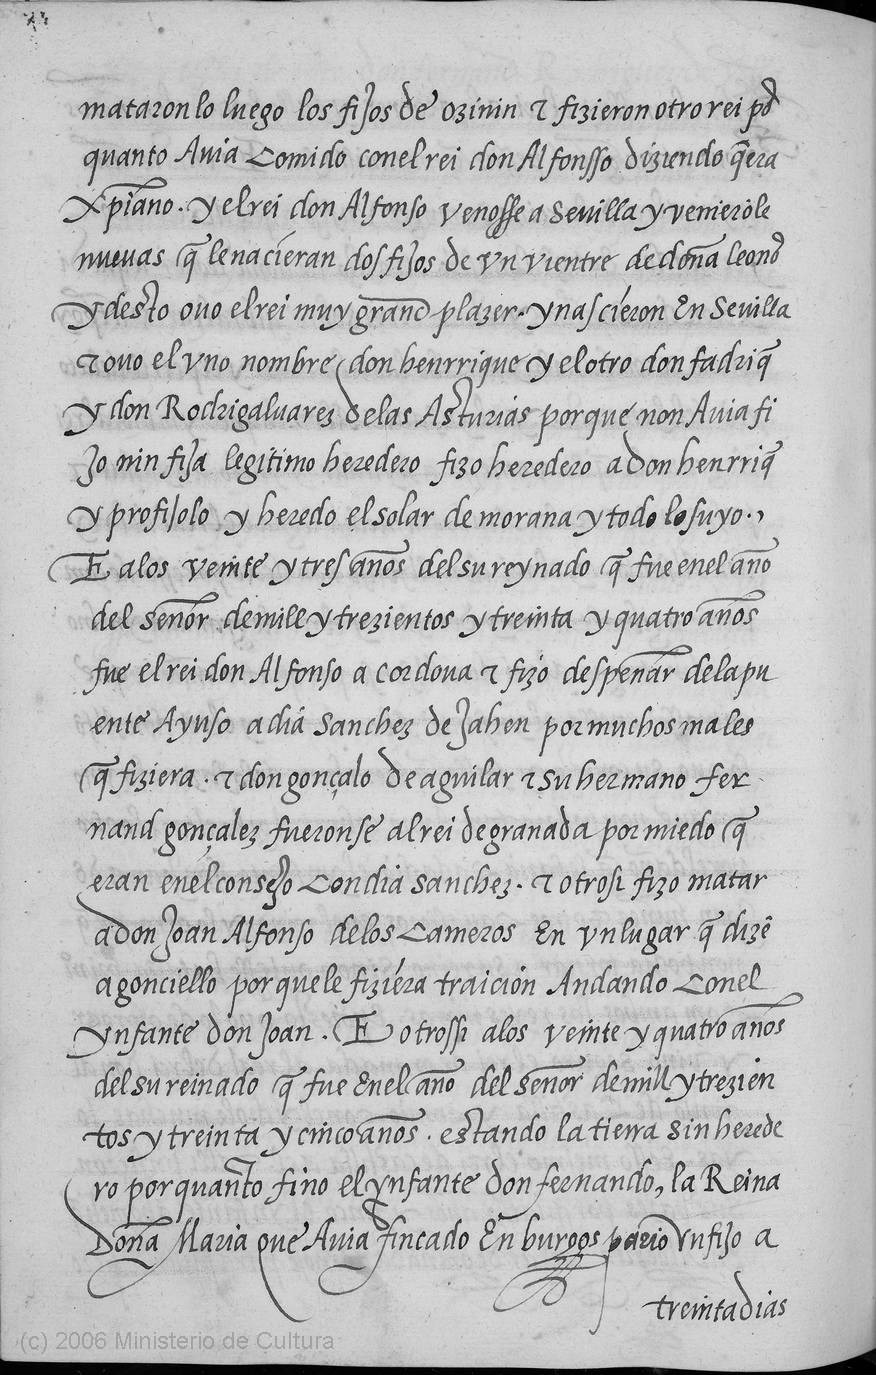 mataron lo luego los fijos de ozinin τ fizieron otro rei por
quanto Auia comido con el rei don Alfonsso diziendo q̃ era
Xp̃iano. y el rei don Alfonso venosse a Sevilla y venierõle
nuevas q̃ le nacieran dos fijos de vn vientre de doña leonor
y desto ouo el rei muy grand plazer. y nascieron En Sevilla
τ ouo el vno nombre don henrrique y el otro don fadriq̃
y don Rodrigaluarez de las Asturias porque non Auia fi
jo nin fija legitimo heredero fizo heredero a don henrriq̃
y profijolo y heredo el solar de morana y todo lo suyo.,
E a los veinte y tres años del su reynado q̃ fue en el año
del señor de mill y trezientos y treinta y quatro años
fue el rei don Alfonso a cordova τ fizo despeñar de la pu
ente Ayuso a dia Sanchez de Jahen por muchos males
q̃ fiziera. τ don gonçalo de aguilar τ su hermano fer
nand gonçalez fueronse al rei de granada por miedo q̃
eran en el consejo con dia sanchez. τ otrosi fizo matar
a don Joan Alfonso de los Cameros En vn lugar q̃ dizẽ
agonciello por que le fiziera traicion Andando conel
ynfante don Joan. E otrossi a los veinte y quatro años
del su reinado q̃ fue En el año del señor de mill y trezien
tos y treinta y cinco años. estando la tierra sin herede
ro por quanto fino el ynfante don fernando, la Reina
Doña Maria que Auia fincado En burgos pario vn fijo a
treinta dias
(c) 2006 Ministerio de Cultura